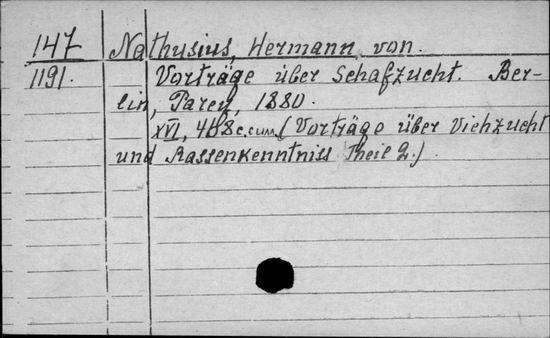 147 Nathusius, Hermann von.
1191. Vorträge über Schafzucht. Ber-
lin, Parey, 1880.
XVI, 468 c. с илл. (Vorträge über Viehzucht
und Rassenkenntniss Theil 2.)